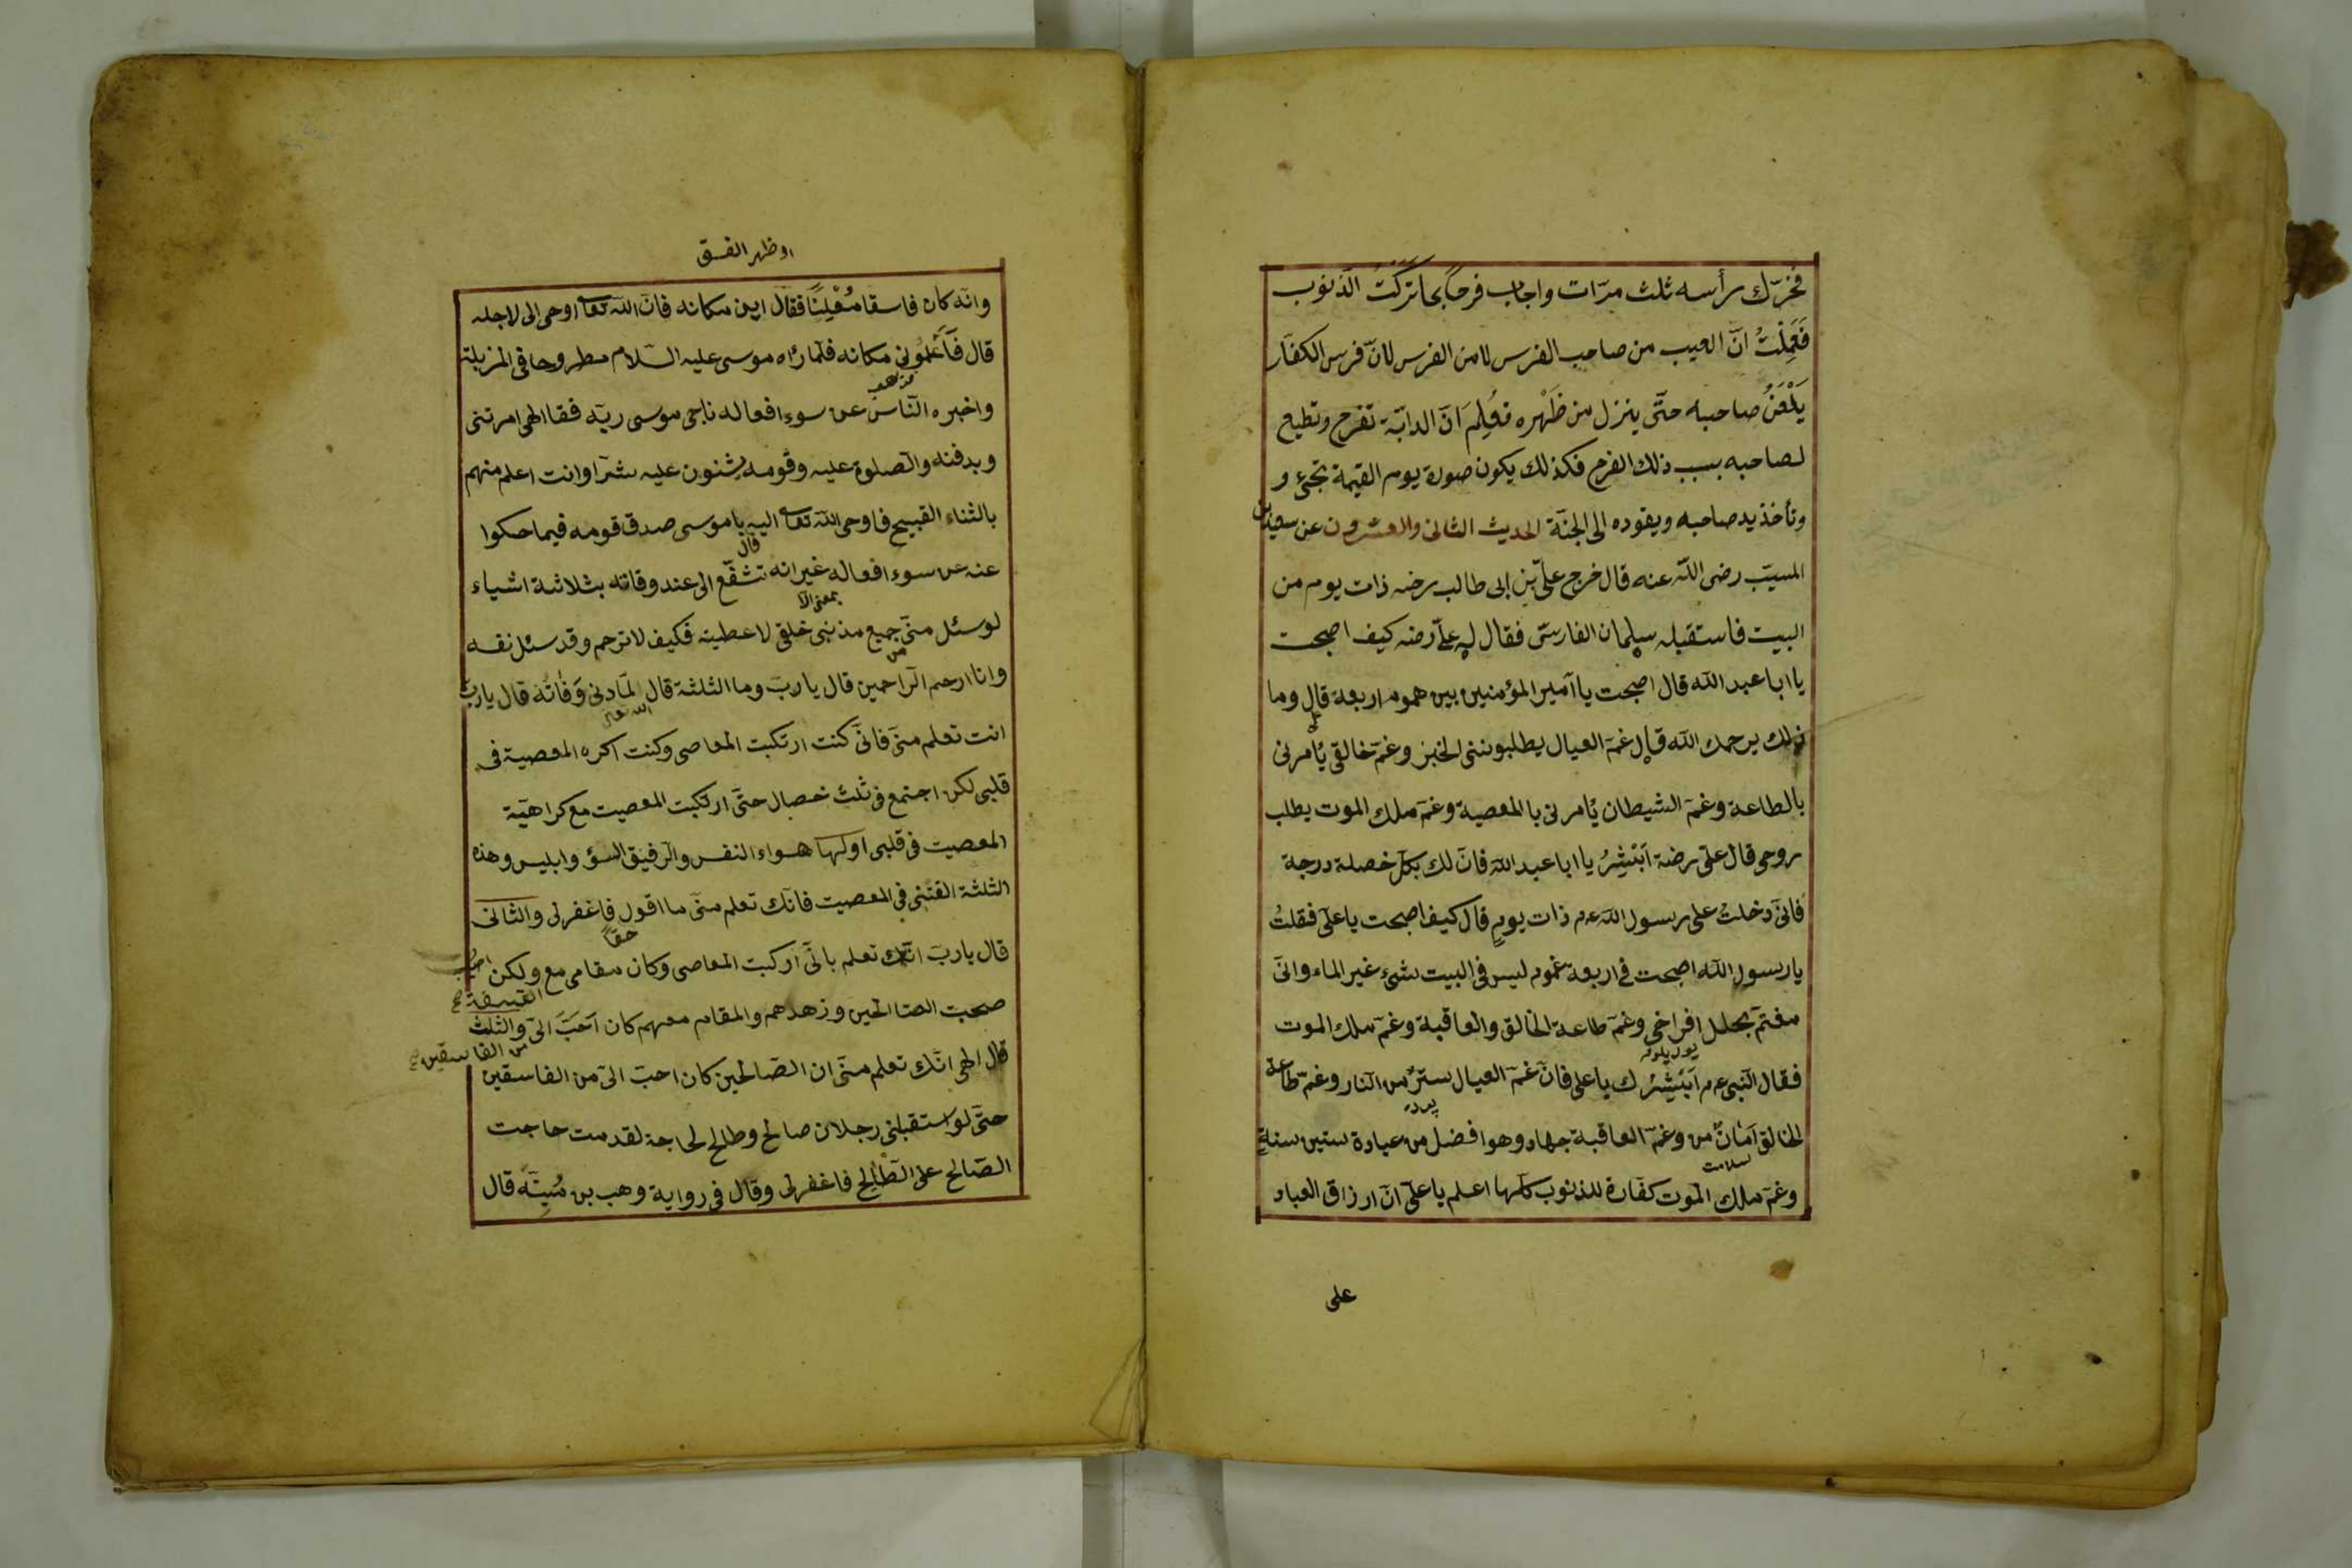 فحرّك رأسه ثلث مرّات واجاب فرحاً بما تركتُ الذنوب
فَعَلِمْتُ انّ العيب من صاحب الفرس لا من الفرس لانّ فرس الكفّار
يَلْعَنُ صاحبه حتّى ينزل من ظَهْره فعُلِمَ انّ الدابّة تفرح وتطيع
لصاحبه بسبب ذلك الفرح فكذلك يكون صورة يوم القيمة تجئ و
وتأخذ يد صاحبه ويقوده الى الجنّة الحديث الثانى والعشرون عن سعيد بن
المسيّب رضى اللّه عنه قال خرج علىّ بن ابى طالب رضه ذات يوم من
البيت فاستقبله سلمان الفارسىّ فقال له علىّ رضه كيف اصبحت
يا ابا عبد اللّه قال اصبحت يا آمير المؤمنين بين هموم اربعة قال وما
ذلك يرحمك اللّه قال غمّ العيال يطلبوننى الخبز وغمّ خالقى يأمرنى
بالطاعة وغمّ الشيطان يأمرنى بالمعصية وغمّ ملك الموت يطلب
روحى قال علىّ رضه اَبْشِرُ يا ابا عبد اللّه فانّ لك بكلّ خصلة درجة
فانّى دخلتُ على رسول اللّه عم ذات يومٍ قال كيف اصبحت يا علىّ فقلتُ
يا رسول اللّه اصبحت فى اربعة غموم ليس فى البيت شئ غير الماء وانّى
مغتمّ بحلل افراخى وغمّ طاعة الخالق والعاقبة وغمّ ملك الموت
فقال النّبى عم اَبَشِرُك يا على فانّ غمّ العيال سترٌ من النار وغمّ طاعة
الخالق اَمانٌ من وغمّ العاقبة جهاد وهو افضل من عبادة ستين سنةٍ
سلامت
وغمّ ملك الموت كفّارة للذنوب كلّها اعلم يا علىّ انّ ارزاق العباد
على
اوظهر الفسق
وانّه كان فاسقا مُعْلِنًا فقال اين مكانه فانّ اللّه تعا اوحى الى لاجله
قال فَاَعْلمُونى مكانه فلمّا رأه موسى عليه السّلام مطروحا فى المزبلة
واخبره النّاس عن سوءِ افعاله ناجى موسى ربّه فقا الهى امرتنى
وبدفنه والصلوة عليه وقومه يشنون عليه شرّا وانت اعلم منهم
بالثناء القبيح فاوحى اللّه تعا اليه يا موسى صدق قومه فيما حكوا
قال
عنه عن سوء افعاله غير انه تشفّع الى عند وفاته بثلاثة اشياء
بمعنى الّا
لو سئل منّى جميع مذنبى خلقى لاعطيته فكيف لا ترحم وقد سئل نفسه
من
وانا ارحم الرّاحمين قال يا ربّ وما الثلثة قال لمّا دنى وَفاتُه قال يا ربّ
انت تعلم منّى فانّى كنت ارتكبت المعاصى وكنت اكره المعصية فى
قلبى لكن اجتمع فى ثلث خصال حتّى ارتكبت المعصيت مع كراهيّة
المعصيت فى قلبى اولها هواء النفس والرفيق السؤ وابليس وهذه
الثلثة القتنى فى المعصيت فانّك تعلم منّى ما اقول فاغفرلى والثانى
حقاً
قال يا ربّ انّك تعلم بانّى اركبت المعاصى وكان مقامى مع ولكن احبّ
الفسقة صح
صحبت الصالحين وزهدهم والمقام معهم كان اَحَبَّ الىّ والثلث
من الفاسقين صح
قال الهى انّك تعلم منّى ان الصّالحين كان احبّ الىّ من الفاسقين
حتّى لو استقبلنى رجلان صالح وطالح لحاجة لقدمت حاجت
الصّالح على الطّالح فاغفرلى وقال فى رواية وهب بن مُنبّه قال